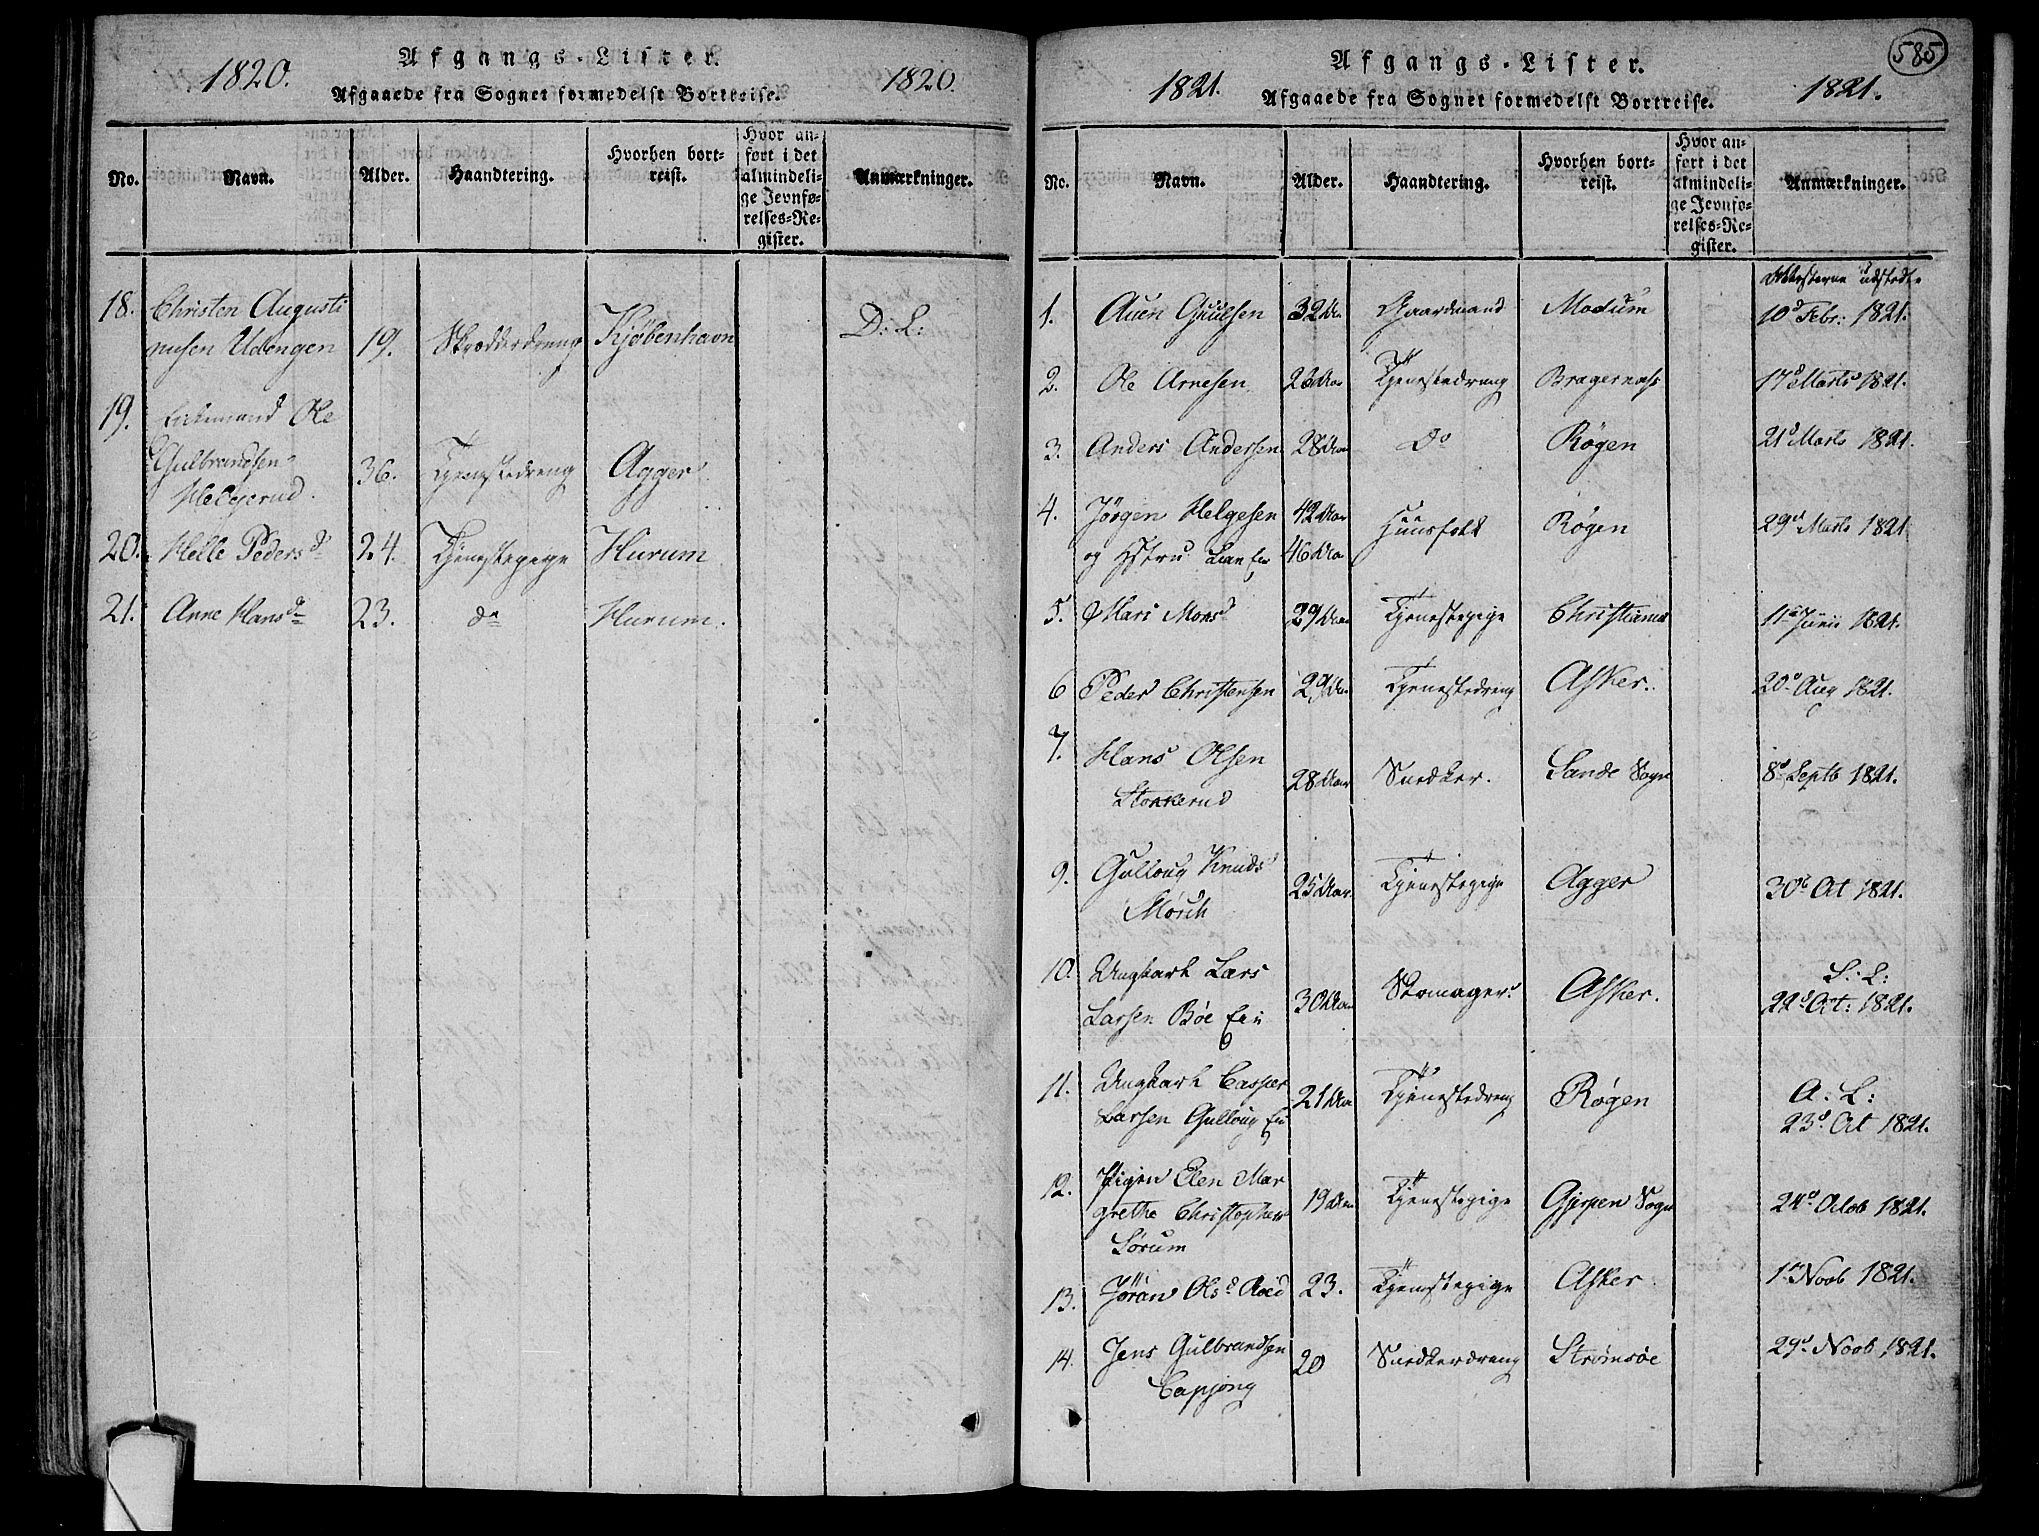 1820.
Afgangs-Lister.
Afgaaede fra Sognet formedelst Bortreise.
1820.
No. Navn. Alder. Haandtering. Hvorhen bort-reist. Hvor an-ført i det almindeli-ge Jevnfø-relses-Re-gister. Anmærkninger.
18. Christen Augusti
nusen Udengen 19. Skrædderdreng Kjøbenhavn D: L:
19. Enkemand Ole
Gulbrandsen 36. Tjenestedreng Agger
Helgerud.
20. Helle Peders d 24. Tjenestepige Hurum
21. Anne Hans d 23. do Hurum.
585
1821.
Afgangs-Lister.
Afgaaede fra Sognet formedelst Bortreise.
1821.
No. Navn. Alder. Haandtering. Hvorhen bort-reist. Hvor an-ført i det almindeli-ge Jevnfø-relses-Re-gister. Anmærkninger.
Attesterne udstedte
1. Auen Guulsen 32 Aar Gaardmand Modum 10d Febr: 1821.
2. Ole Arnesen 23 Aar Tjenestedreng Bragernæss 17d Marts 1821.
3. Anders Andersen 28 Aar Do Røgen 21d Marts 1821.
4. Jörgen Helgesen 42 Aar Huusfolk Røgen 29d Marts 1821
og Hstru 46 Aar
5. Mari Monsd 29 Aar Tjenestepige Christiania 11d Junii 1821.
6 Peder Christensen 29 Aar Tjenestedreng Asker. 20d Aug 1821.
7. Hans Olsen
Stokkerud 28 Aar Snedker. Sande Sogn 8d Septb 1821.
9. Gulloug Knuds
Mörch 25 Aar Tjenestepige Agger 30d Oct 1821.
10. Ungkarl Lars S: L:
Larsen Böe Eie 30 Aar Skomager. Asker. 22d Oct: 1821.
11. Ungkarl Casper A: L:
Larsen Gulloug Eie 21 Aar Tjenestedreng Røgen 23d Oct 1821.
12. Pigen Elen Mar
grethe Christophers 19 Aar Tjenestepige Gjerpen Sogn 24d Octob 1821.
Sörum
13. Jöran Ols d Aaed 23. Tjenestepige Asker 1d Novb 1821.
14. Jens Gulbrandsen 20 Snedkerdreng Strömsöe 29d Novb 1821.
Capjong